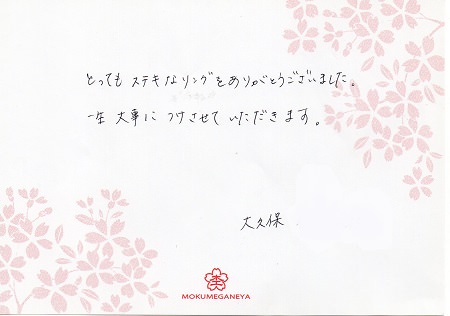 とっても ステキなリングをありがとうございました。
一生 大事に つけさせて いただきます。
大久保
MOKUMEGANEYA